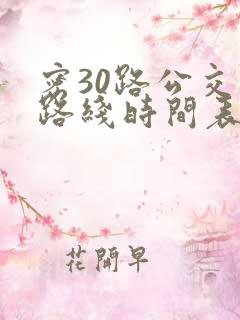 密30路公交
路綫時間表
花開早